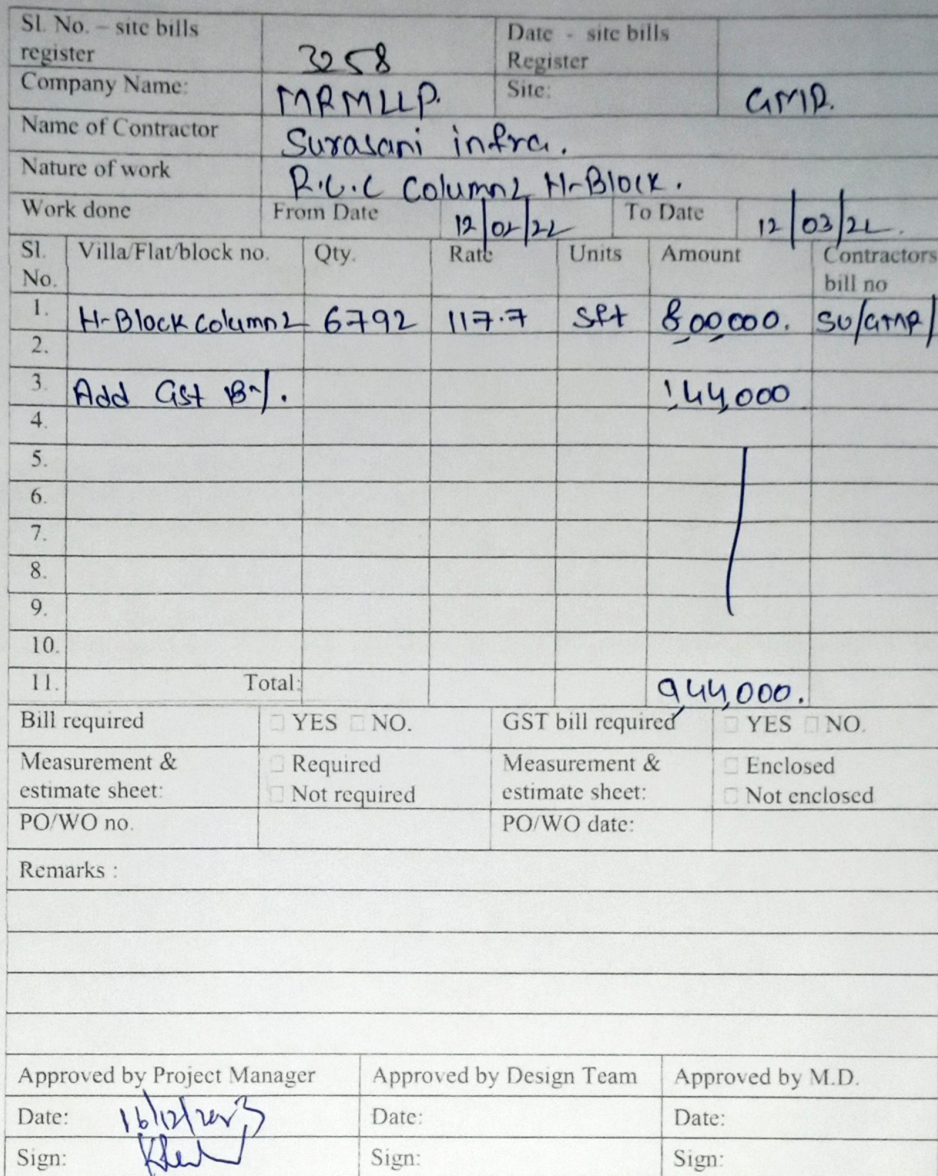 Sl. No. – site bills register 3258 Date - site bills Register
Company Name: MRMLLP. Site: GMR.
Name of Contractor Surasani infra.
Nature of work R.C.C Column2 H-Block.
Work done From Date 12/02/22 To Date 12/03/22.
Sl. No. Villa/Flat/block no. Qty. Rate Units Amount Contractors bill no
1. H-Block Column2 6792 117.7 Sft 8,00,000. SU/GMR/
2.
3. Add Gst 18%. 1,44,000
4.
5.
6.
7.
8.
9.
10.
11. Total: 9,44,000.
Bill required □ YES □ NO. GST bill required □ YES □ NO.
Measurement & estimate sheet: □ Required □ Not required Measurement & estimate sheet: □ Enclosed □ Not enclosed
PO/WO no. PO/WO date:
Remarks :
Approved by Project Manager Approved by Design Team Approved by M.D.
Date: 16/12/2023 Date: Date:
Sign: Sign: Sign: